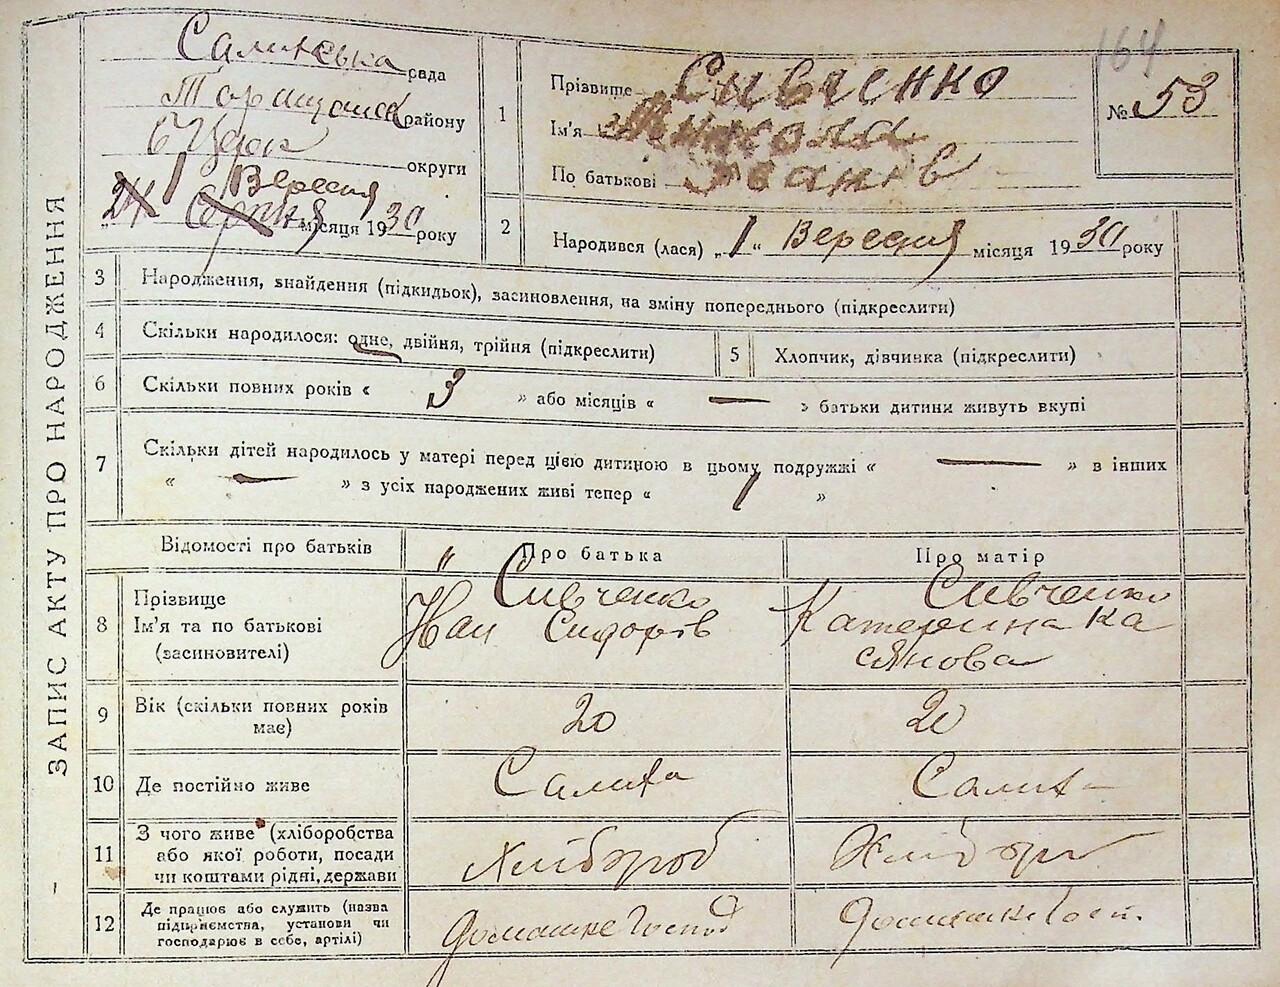 164
ЗАПИС АКТУ ПРО НАРОДЖЕННЯ
Салиська рада
району
Б Церк округи
1 Вересня
„24 Серпня місяця 1930 року
1 Прізвище Сывченко
Ім'я Микола
По батькові Іванів
№ 53
2 Народився (лася) „1“ Вересня місяця 1930 року
3 Народження, знайдення (підкидьок), засиновлення, на зміну попереднього (підкреслити)
4 Скільки народилося: одне, двійня, трійня (підкреслити)
5 Хлопчик, дівчинка (підкреслити)
6 Скільки повних років « 3 » або місяців « — » батьки дитини живуть вкупі
7 Скільки дітей народилось у матері перед цією дитиною в цьому подружжі « — » в інших
« — » з усіх народжених живі тепер « 1 »
Відомості про батьків Про батька Про матір
8 Прізвище
Ім'я та по батькові
(засиновителі)
Сивченко
Иван Сидорів
Сивченко
Катерина Ка
сянова
9 Вік (скільки повних років
має)
20
20
10 Де постійно живе
11 З чого живе (хліборобства
або якої роботи, посади
чи коштами рідні, держави
Хлібороб
12 Де працює або служить (назва
підприємства, установи чи
господарює в себе, артілі)
домашнє Господ